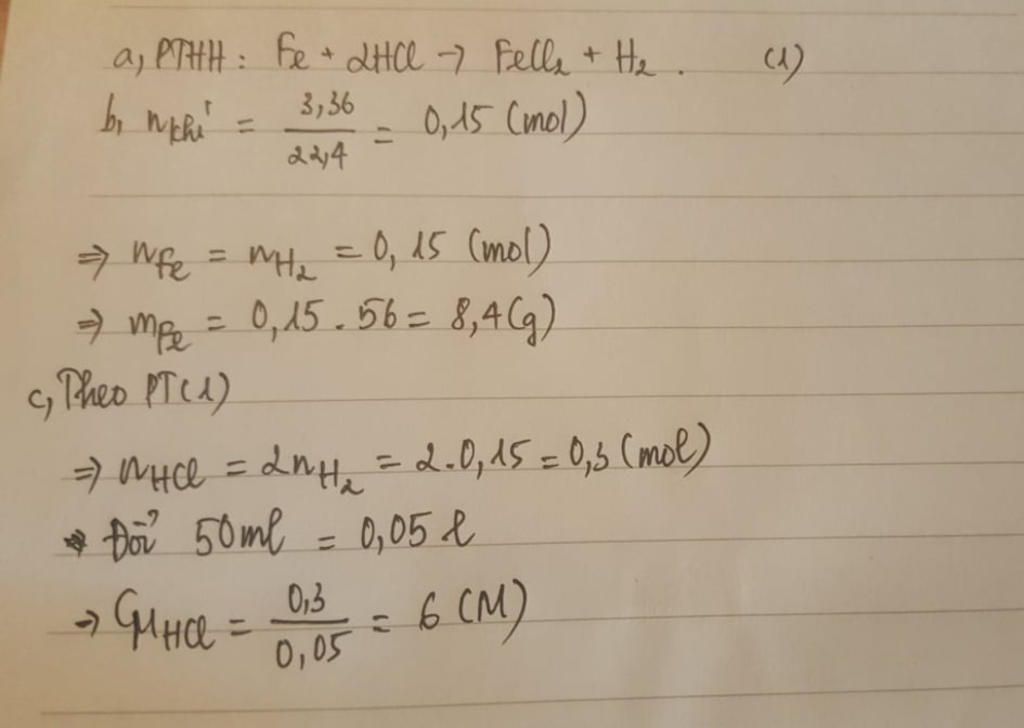 a, PTHH: Fe + 2HCl → FeCl₂ + H₂. (1)
b, nkhí = 3,36 / 22,4 = 0,15 (mol)
⇒ nFe = nH₂ = 0,15 (mol)
⇒ mFe = 0,15 . 56 = 8,4 (g)
c, Theo PT(1)
⇒ nHCl = 2nH₂ = 2.0,15 = 0,3 (mol)
Đổi 50ml = 0,05 l
→ CMHCl = 0,3 / 0,05 = 6 (M)